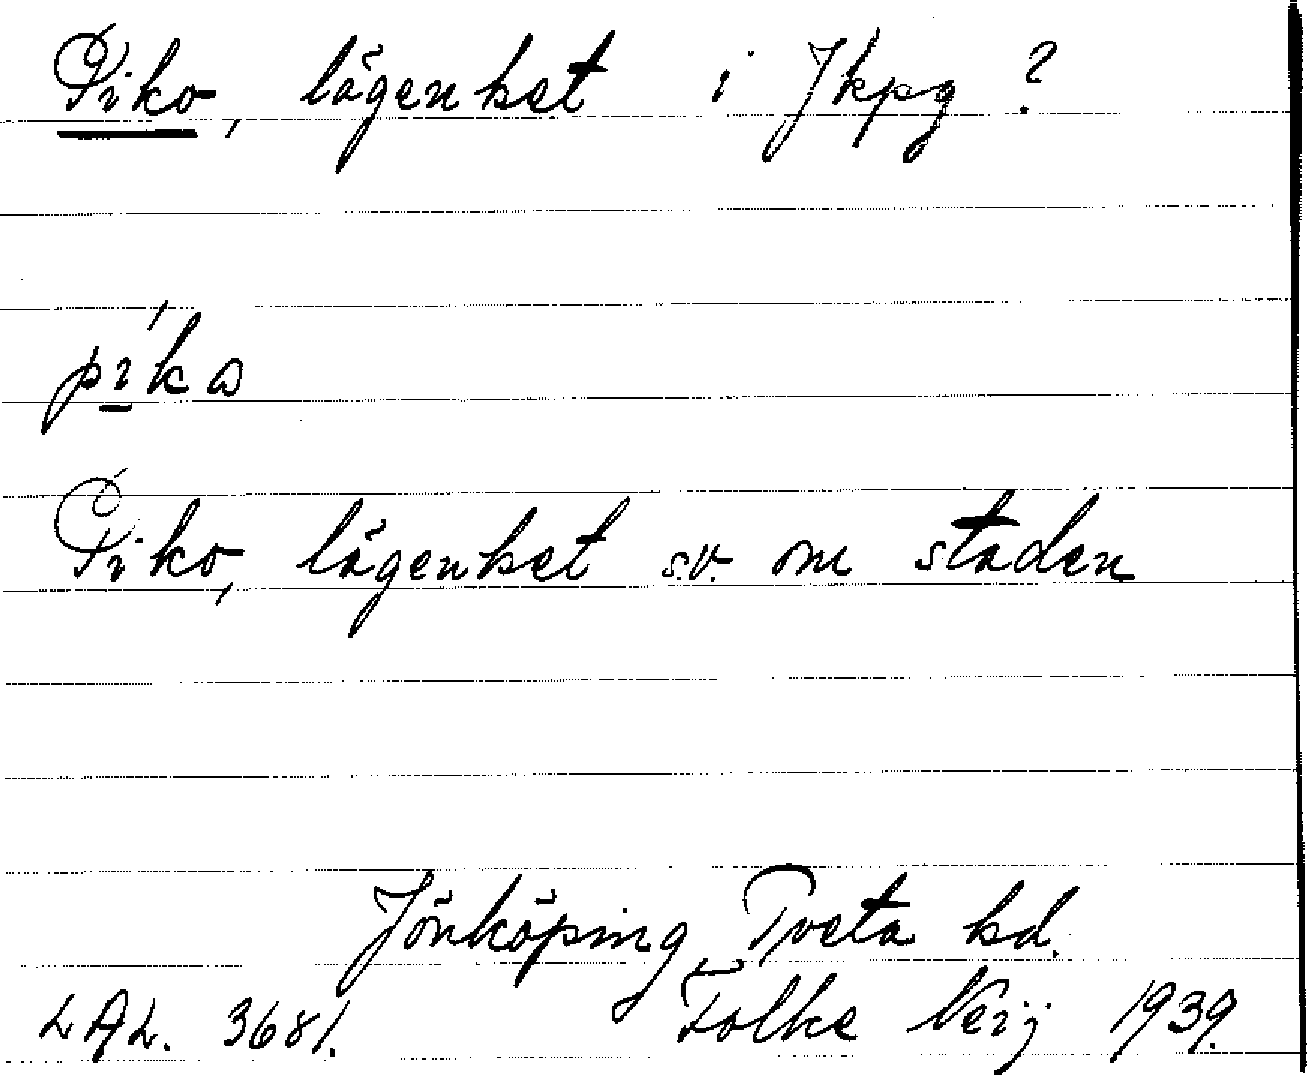 Piko, lägenhet i Jkpg ?
píka
Piko, lägenhet s.v. om staden
Jönköping, Tveta hd.
LAL. 3681. Folke Neij 1939.